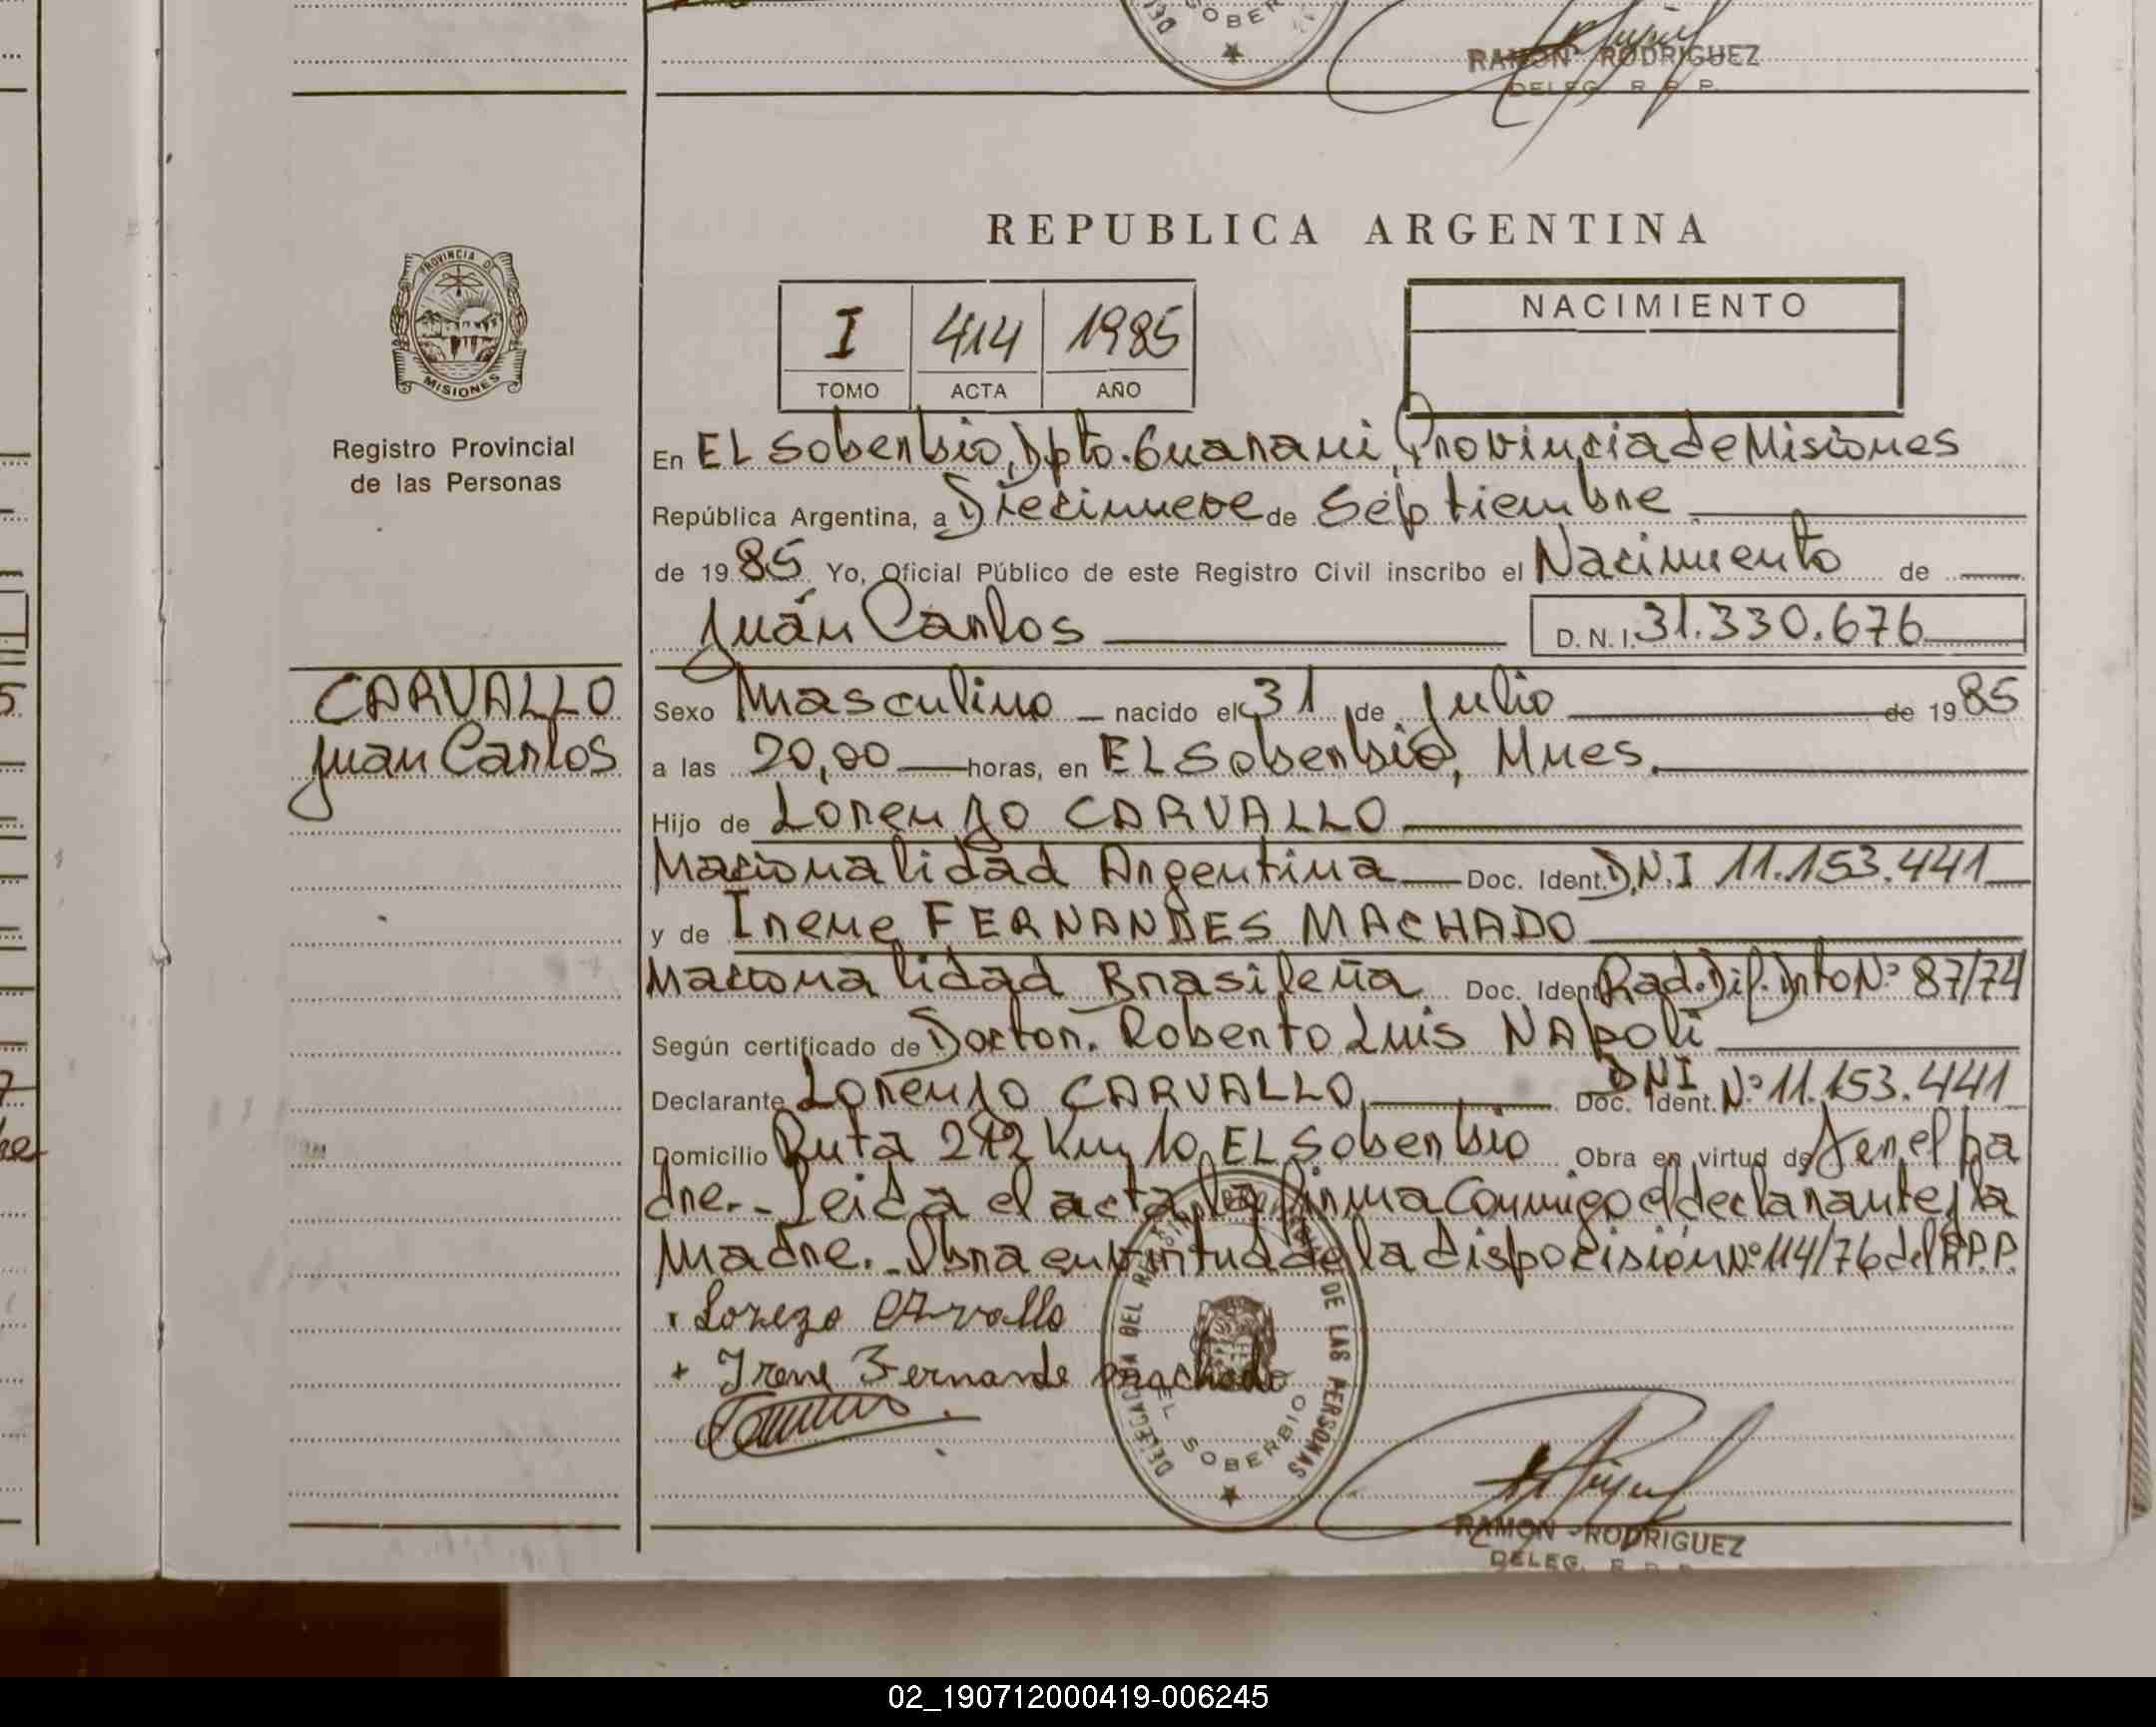 SOBER
RAMON RODRIGUEZ
DELEG. R. P. P.
REPUBLICA ARGENTINA
PROVINCIA DE
MISIONES
Registro Provincial
de las Personas
I 414 1985
TOMO ACTA AÑO
NACIMIENTO
En EL Soberbio, Dpto. Guarani, Provincia de Misiones
República Argentina, a Diecinueve de Septiembre
de 1985 Yo, Oficial Público de este Registro Civil inscribo el Nacimiento de
Juán Carlos D.N.I. 31.330.676
CARVALLO
Juan Carlos
Sexo Masculino nacido el 31 de Julio de 1985
a las 20,00 horas, en EL Soberbio, Mnes.
Hijo de Lorenzo CARVALLO
Nacionalidad Argentina Doc. Ident. D.N.I 11.153.441
y de Irene FERNANDES MACHADO
Nacionalidad Brasileña Doc. Ident. Rad. Dif. Dnto Nº 87/74
Según certificado de Doctor. Roberto Luis NApoli
Declarante Lorenzo CARVALLO, Doc. Ident. DNI Nº 11.153.441
Domicilio Ruta 212 Km 10, EL Soberbio Obra en virtud de Ser el pa
dre.- Leida el acta, la firma Conmigo el declarante y la
Madre.- Obra en virtud de la disposisión Nº 114/76 del R.P.P.
Lorezo CArvallo
+ Irene Fernande machado
DELEGACION DEL REGISTRO DE LAS PERSONAS
EL SOBERBIO
RAMON RODRIGUEZ
DELEG. R. P. P.
02_190712000419-006245